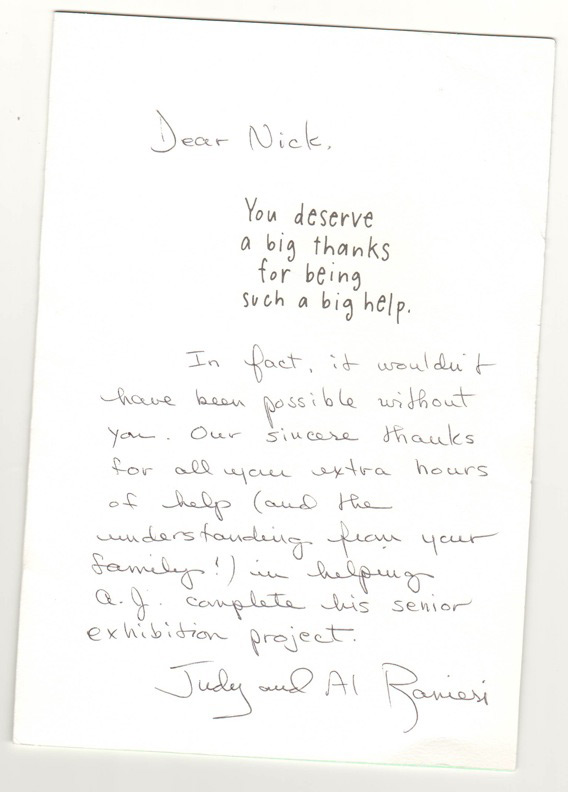 Dear Nick,
You deserve
a big thanks
for being
such a big help.
In fact, it wouldn't
have been possible without
you. Our sincere thanks
for all your extra hours
of help (and the
understanding from your
family!) in helping
A.J. complete his senior
exhibition project.
Judy and Al Raniesi